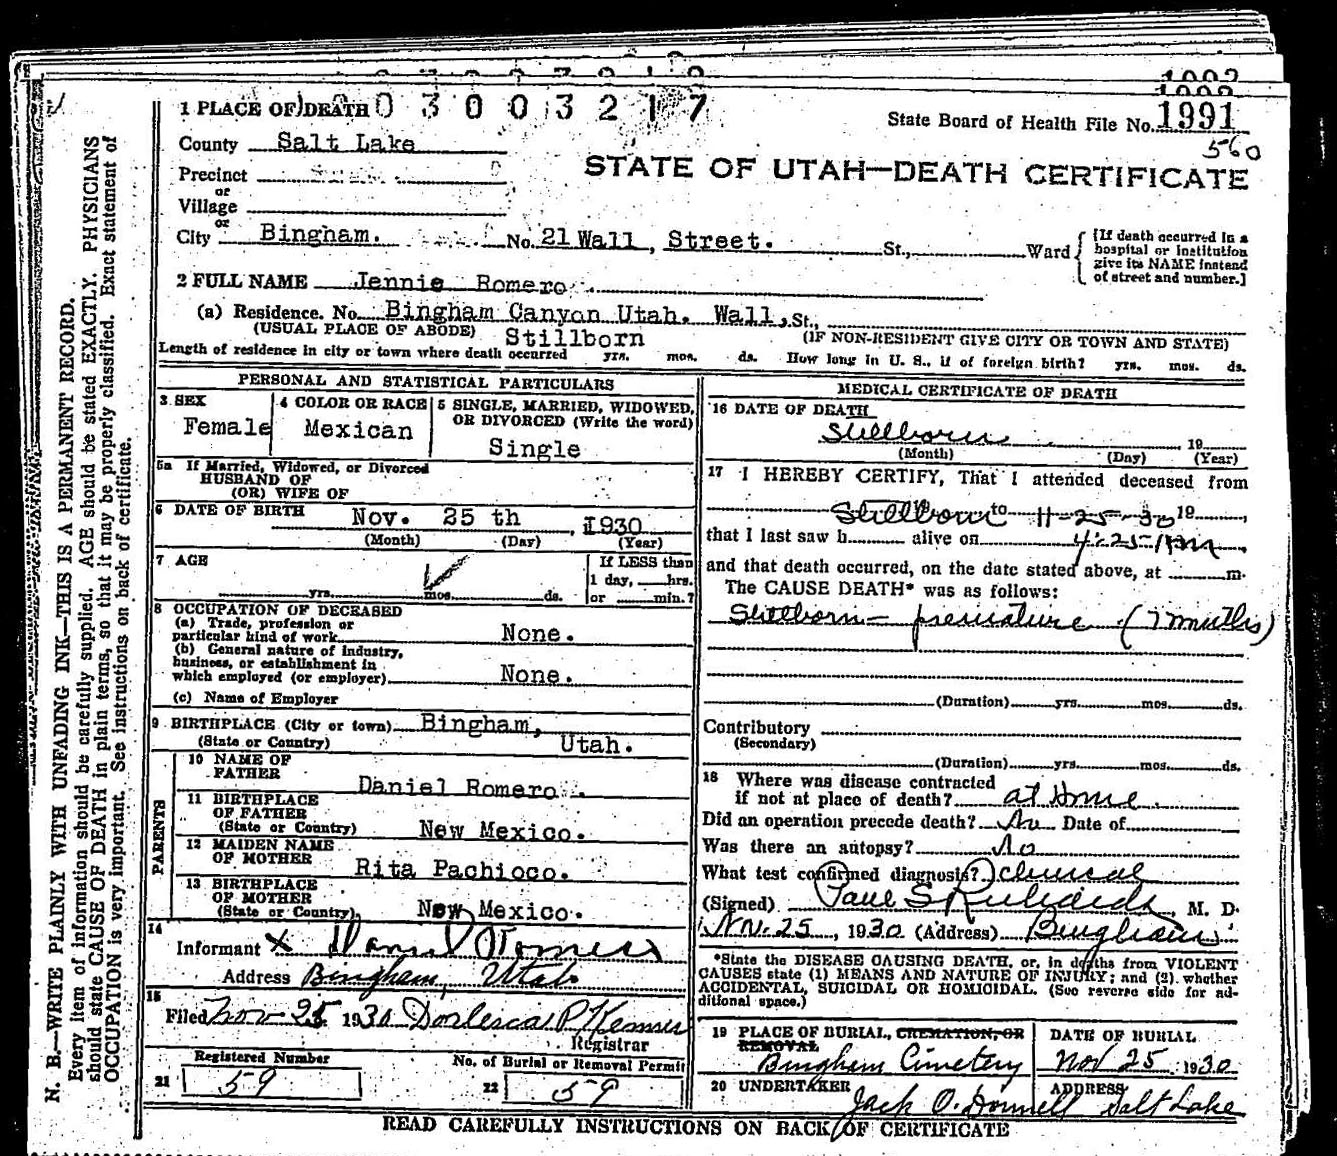 1 PLACE OF DEATH
03003217
State Board of Health File No. 1991
560
County Salt Lake
STATE OF UTAH—DEATH CERTIFICATE
Precinct
or
Village
or
City Bingham. No. 21 Wall, Street. St., Ward
[If death occurred in a hospital or institution give its NAME instead of street and number.]
2 FULL NAME Jennie Romero
(a) Residence. No. Bingham Canyon Utah. Wall, St.,
(USUAL PLACE OF ABODE) Stillborn (IF NON-RESIDENT GIVE CITY OR TOWN AND STATE)
Length of residence in city or town where death occurred yrs. mos. ds. How long in U. S., if of foreign birth? yrs. mos. ds.
PERSONAL AND STATISTICAL PARTICULARS
3 SEX 4 COLOR OR RACE 5 SINGLE, MARRIED, WIDOWED,
OR DIVORCED (Write the word)
Female Mexican Single
5a If Married, Widowed, or Divorced
HUSBAND OF
(OR) WIFE OF
6 DATE OF BIRTH Nov. 25 th, 1930
(Month) (Day) (Year)
7 AGE If LESS than
1 day, hrs.
yrs. mos. ds. or min.?
8 OCCUPATION OF DECEASED
(a) Trade, profession or
particular kind of work None.
(b) General nature of industry,
business, or establishment in
which employed (or employer) None.
(c) Name of Employer
9 BIRTHPLACE (City or town) Bingham,
(State or Country) Utah.
PARENTS
10 NAME OF
FATHER Daniel Romero.
11 BIRTHPLACE
OF FATHER
(State or Country) New Mexico.
12 MAIDEN NAME
OF MOTHER Rita Pachioco.
13 BIRTHPLACE
OF MOTHER
(State or Country) New Mexico.
14
Informant X Daniel Romero
Address Bingham, Utah
15
Filed Nov 25 1930
Registrar
Registered Number No. of Burial or Removal Permit
21 59 22 59
MEDICAL CERTIFICATE OF DEATH
16 DATE OF DEATH
Stillborn 19
(Month) (Day) (Year)
17 I HEREBY CERTIFY, That I attended deceased from
Stillborn to 11-25-30 19
that I last saw h alive on
and that death occurred, on the date stated above, at m.
The CAUSE DEATH* was as follows:
Stillborn — premature (7 months)
(Duration) yrs. mos. ds.
Contributory
(Secondary)
(Duration) yrs. mos. ds.
18 Where was disease contracted
if not at place of death? at Home
Did an operation precede death? No Date of
Was there an autopsy? No
What test confirmed diagnosis? clinical
(Signed) Paul S Richards, M. D.
Nov. 25, 1930 (Address) Bingham
*State the DISEASE CAUSING DEATH, or, in deaths from VIOLENT
CAUSES state (1) MEANS AND NATURE OF INJURY; and (2) whether
ACCIDENTAL, SUICIDAL OR HOMICIDAL. (See reverse side for ad-
ditional space.)
19 PLACE OF BURIAL, CREMATION, OR
REMOVAL
DATE OF BURIAL
Bingham Cimetery Nov 25 1930
20 UNDERTAKER ADDRESS
Jack O. Donnell Salt Lake
READ CAREFULLY INSTRUCTIONS ON BACK OF CERTIFICATE
N. B.—WRITE PLAINLY WITH UNFADING INK—THIS IS A PERMANENT RECORD.
Every item of information should be carefully supplied. AGE should be stated EXACTLY. PHYSICIANS
should state CAUSE OF DEATH in plain terms, so that it may be properly classified. Exact statement of
OCCUPATION is very important. See instructions on back of certificate.